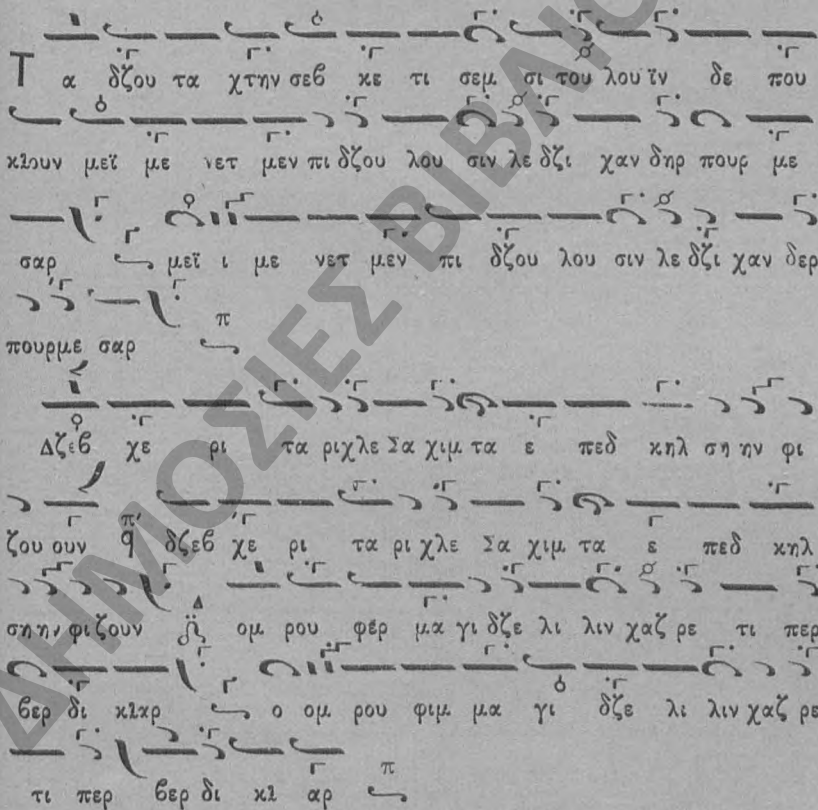 Τα δζου τα χτην σεβ κε τι σεμ σι του λου ϊν δε που
κλουν μεϊ με νετ μεν πι δζου λου σιν λε δζι χαν δηρ πουρ με
σαρ μεϊ ι με νετ μεν πι δζου λου σιν λε δζι χαν δερ
πουρμε σαρ π
Δζεβ χε ρι τα ριχλε Σα χιμ τα ε πεδ κηλ ση ην φι
ζου ουν π' q δζεβ χε ρι τα ρι χλε Σα χιμ τα ε πεδ κηλ
ση ην φι ζουν Δ ομ ρου φερ μα γι δζε λι λιν χαζ ρε τι περ
βερ δι κλαρ ο ομ ρου φιμ μα γι δζε λι λιν χαζ ρε
τι περ βερ δι κλ αρ π
ΔΗΜΟΣΙΕΣ ΒΙΒΛΙΟ